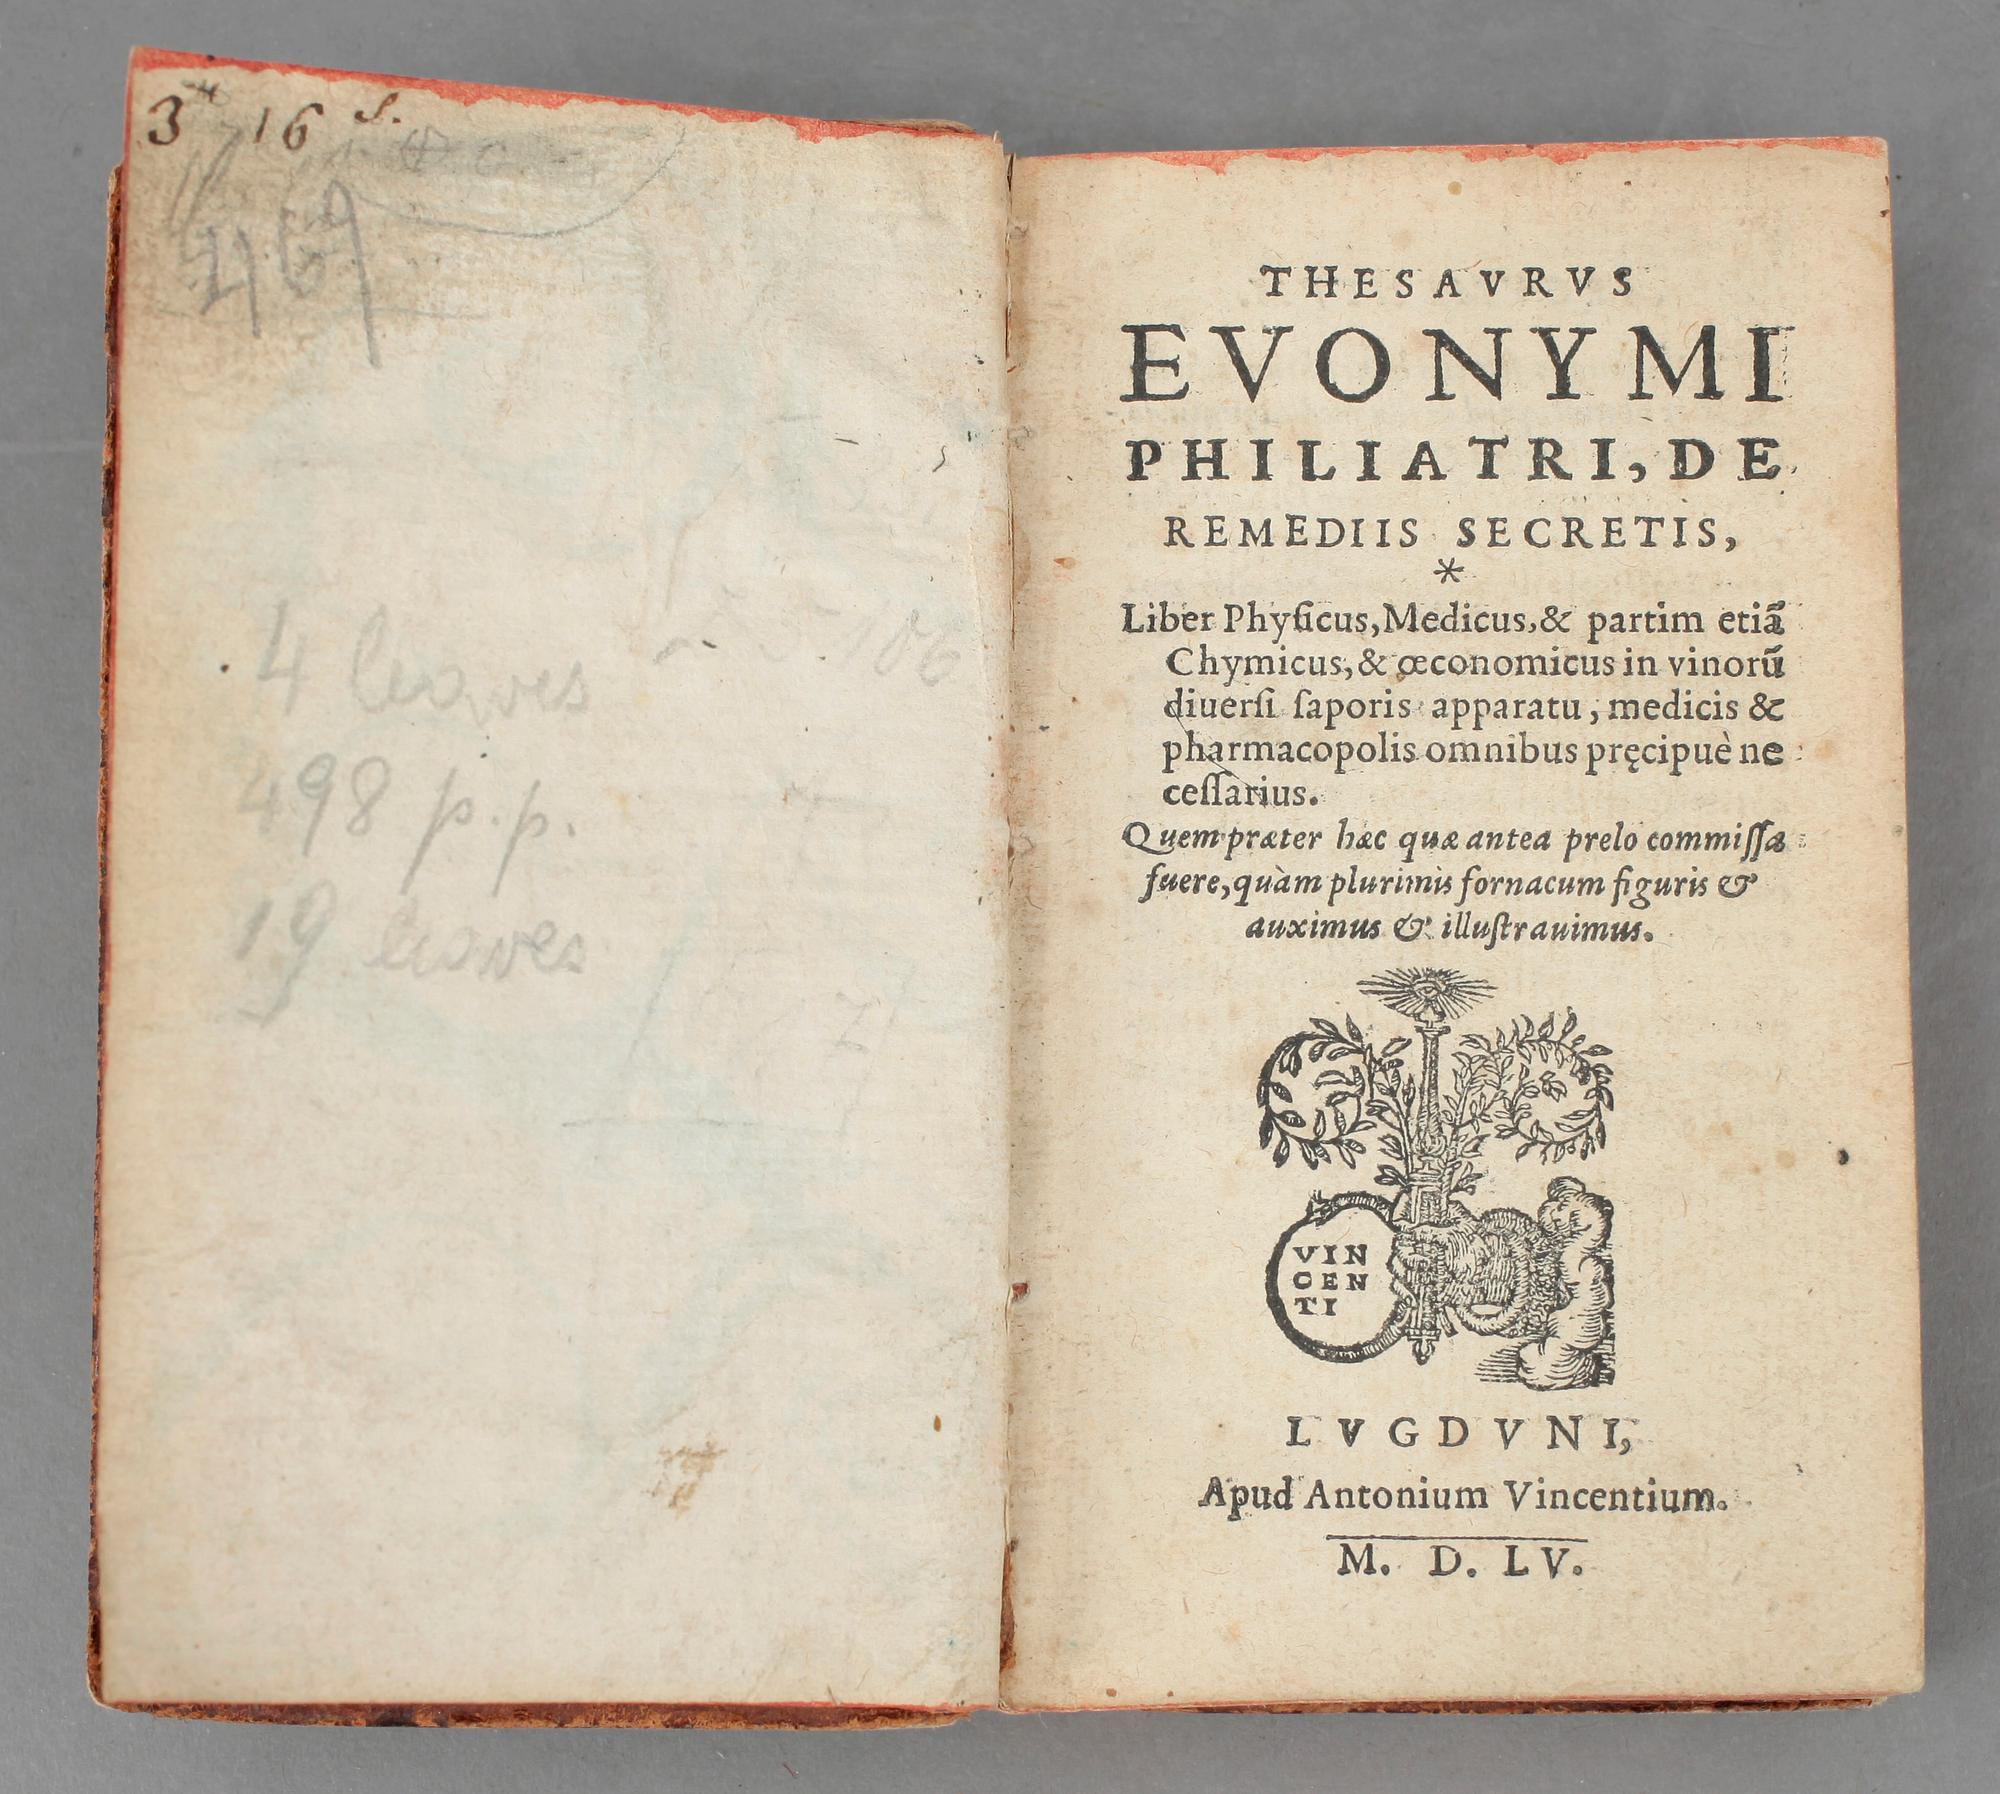 3 16 s.
469
4 leaves
498 p.p.
19 leaves
THESAVRVS
EVONYMI
PHILIATRI, DE
REMEDIIS SECRETIS,
*
Liber Phyſicus, Medicus, & partim etiã
Chymicus, & œconomicus in vinorũ
diuerſi ſaporis apparatu, medicis &
pharmacopolis omnibus pręcipuè ne
ceſſarius.
Quem præter hæc quæ antea prelo commiſſa
fuere, quàm plurimis fornacum figuris &
auximus & illuſtrauimus.
VIN
CEN
TI
LVGDVNI,
Apud Antonium Vincentium.
M. D. LV.